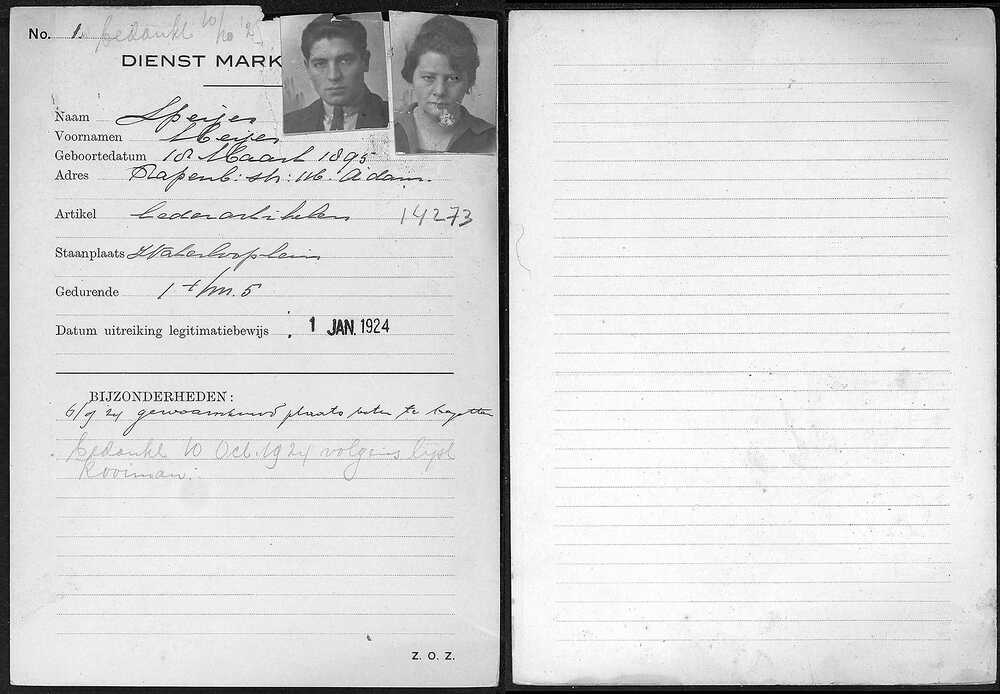 No. 1. bedankt 10/10 '24
DIENST MARK
Naam Speijer
Voornamen Meijer
Geboortedatum 18 Maart 1895
Adres Rapenb: str: 116. A'dam.
Artikel Lederartikelen 14273
Staanplaats Waterlooplein
Gedurende 1 t/m. 5
Datum uitreiking legitimatiebewijs 1 JAN. 1924
BIJZONDERHEDEN:
6/9 24 gewaarschuwd plaats beter te bezetten
bedankt 10 Oct. 1924 volgens lijst
Kooiman.
Z. O. Z.